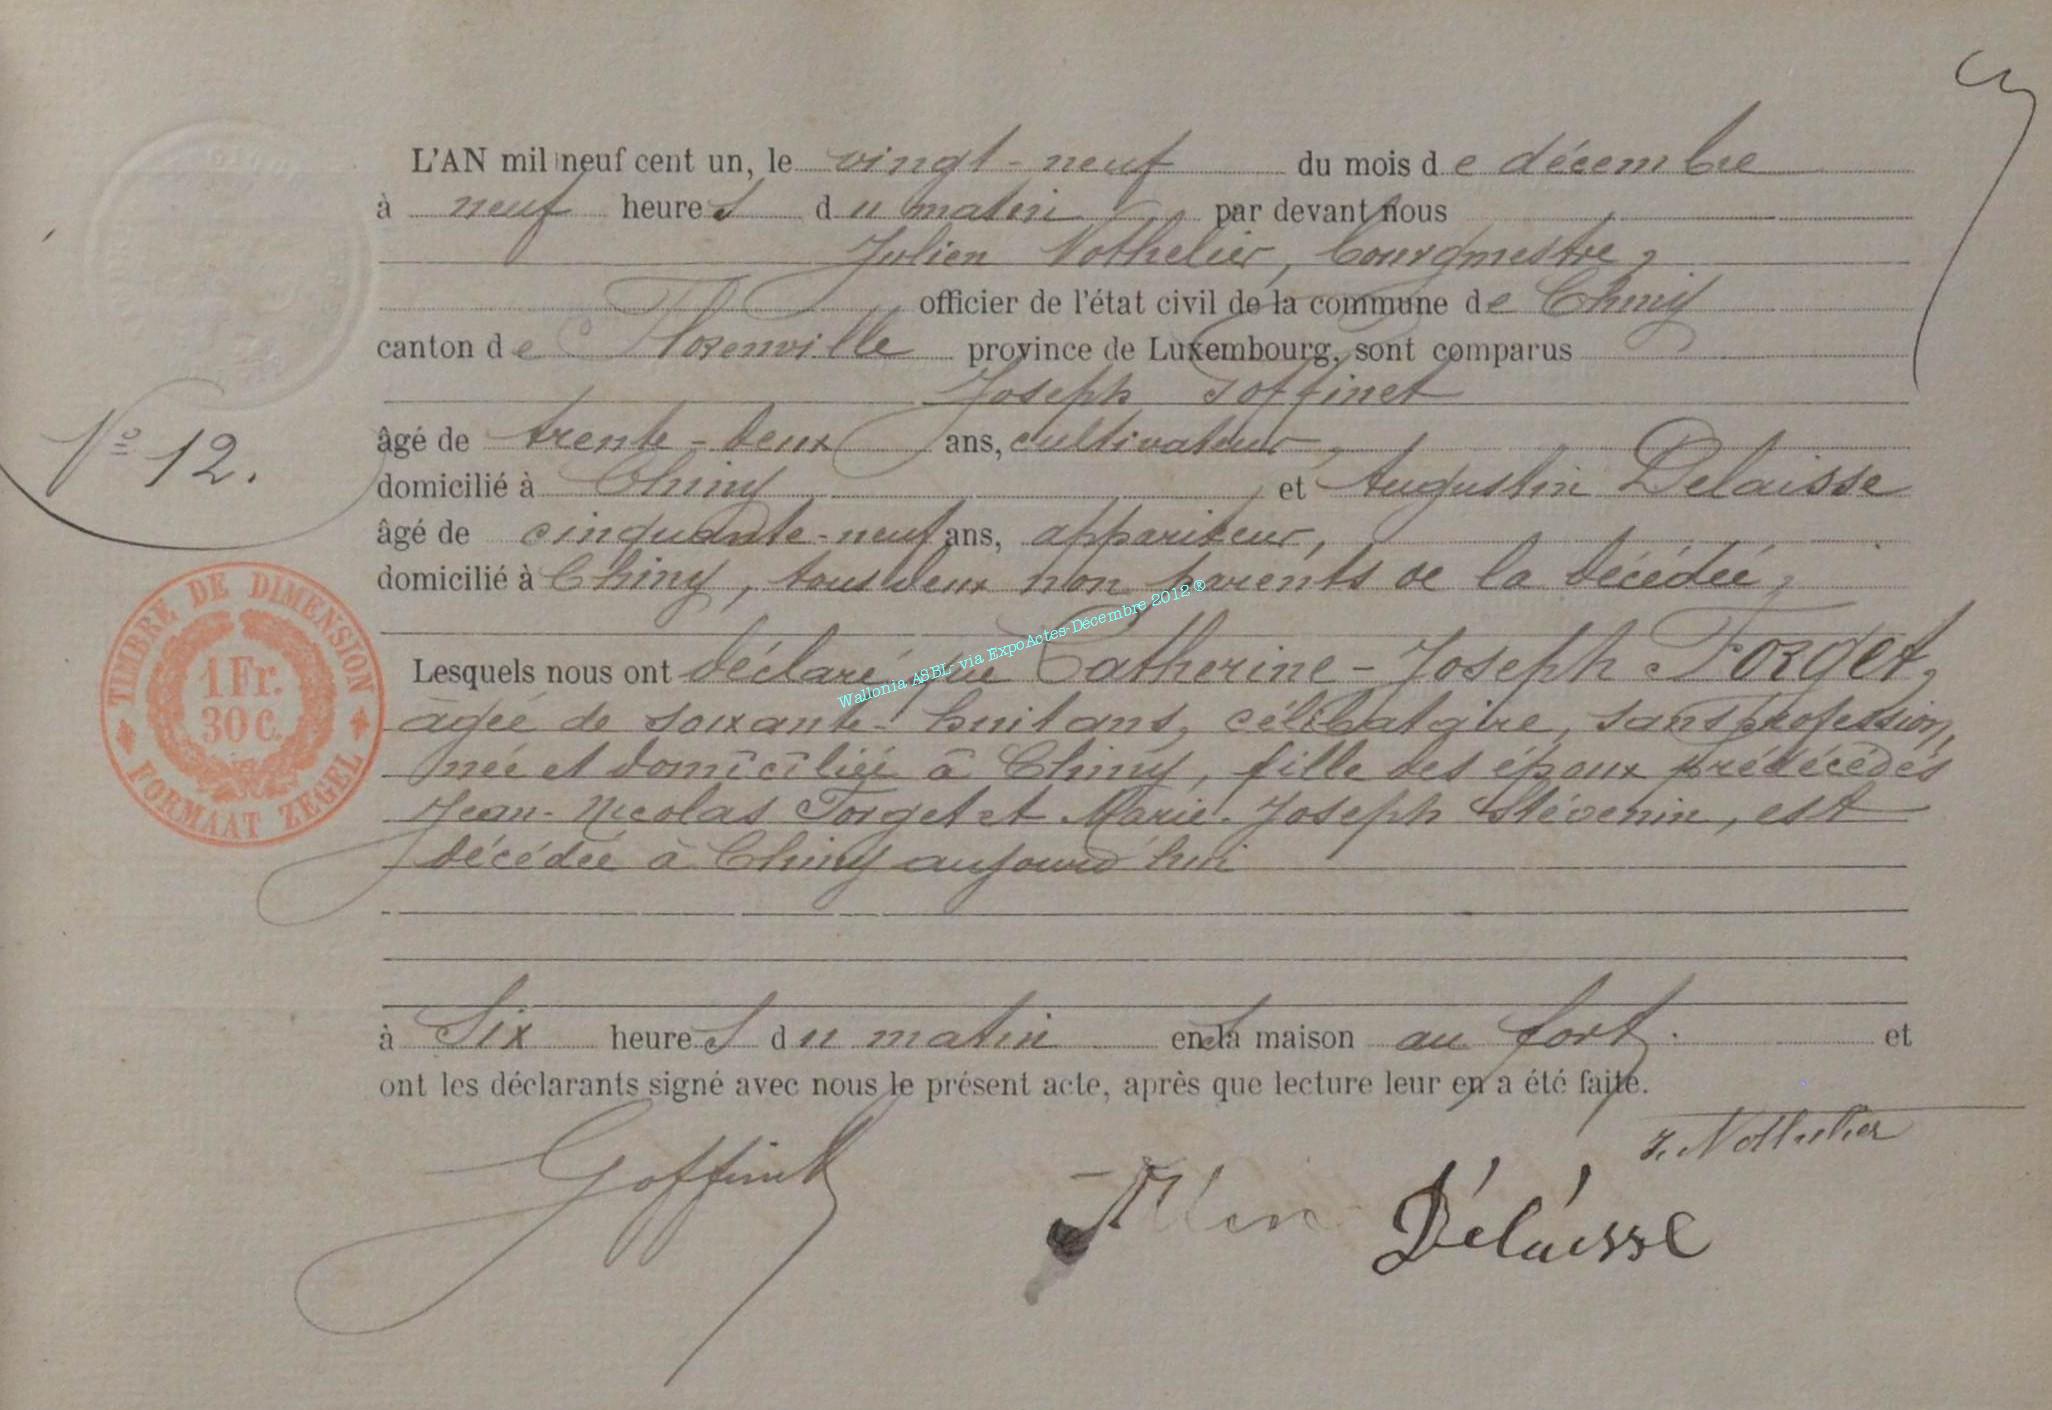 L'AN mil neuf cent un, le vingt-neuf du mois de décembre
à neuf heures du matin par devant nous
Julien Nothelier, bourgmestre,
officier de l'état civil de la commune de Chiny
canton de Florenville province de Luxembourg, sont comparus
Joseph Goffinet
âgé de trente-deux ans, cultivateur,
domicilié à Chiny, et Augustin Delaisse
âgé de cinquante-neuf ans, appariteur,
domicilié à Chiny, tous deux non parents de la décédée,
Lesquels nous ont déclaré que Catherine-Joseph Forget,
âgée de soixante-huit ans, célibataire, sans profession,
née et domiciliée à Chiny, fille des époux prédécédés
Jean-Nicolas Forget et Marie-Joseph Stévenin, est
décédée à Chiny aujourd'hui
à six heures du matin en sa maison au fort. et
ont les déclarants signé avec nous le présent acte, après que lecture leur en a été faite.
J. Nothelier
Goffinet
Délaisse
N° 12.
TIMBRE DE DIMENSION
1 Fr.
30 C.
FORMAAT ZEGEL
Wallonia ASBL- via ExpoActes-Décembre 2012 ®